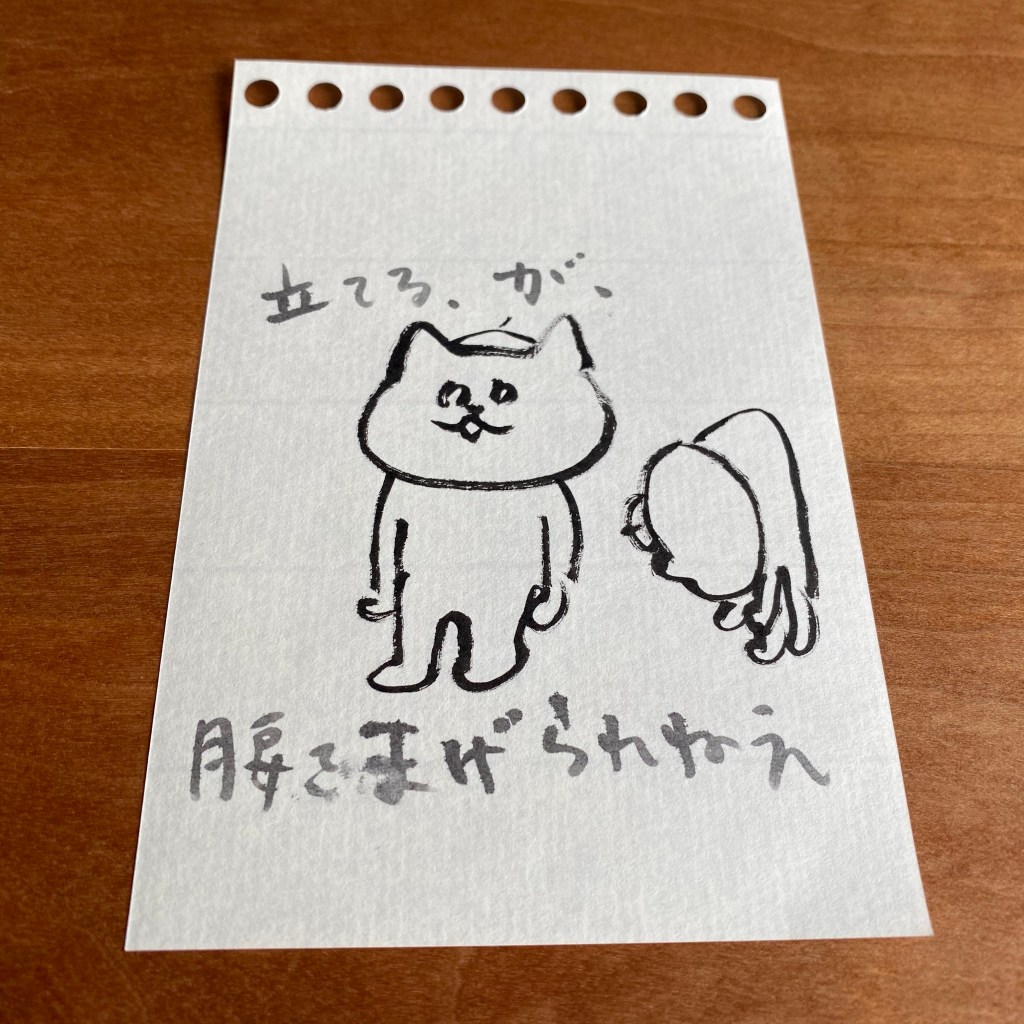 立てる、が、
腰をまげられねえ